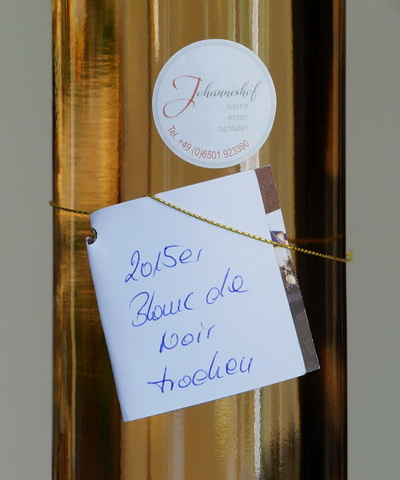 Johannishof
weine
essen
schlafen
Tel. +49 (0)6501 923390
2015er
Blanc de
Noir
trocken